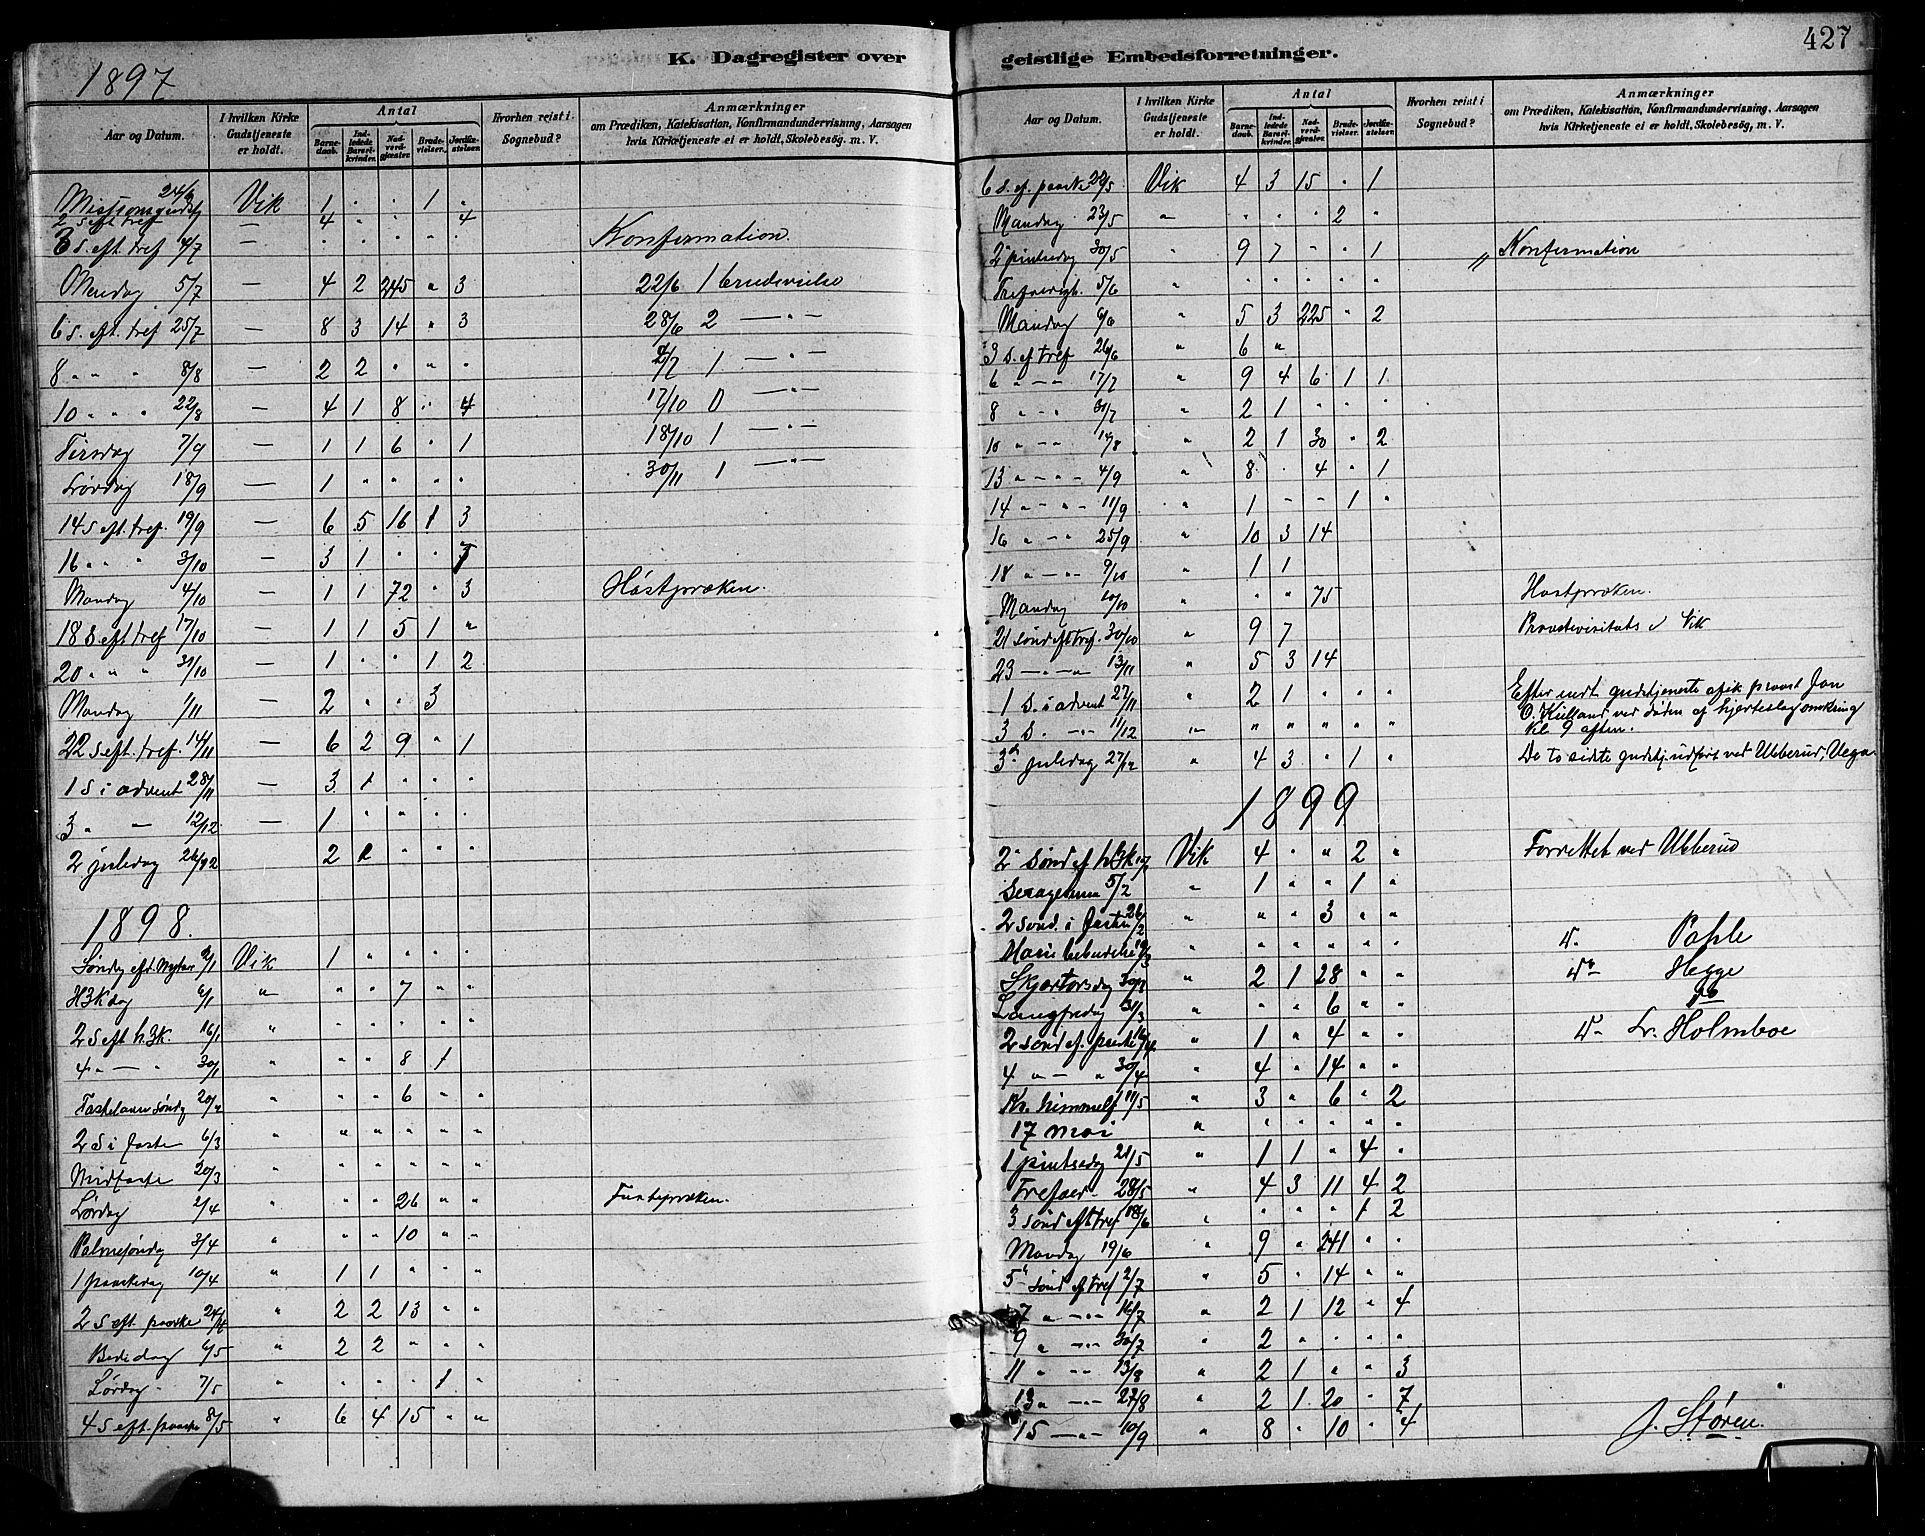 427
K. Dagregister over geistlige Embedsforretninger.
1897
Aar og Datum. | I hvilken Kirke Gudstjeneste er holdt. | Antal | Barnedaab. | Indledede Barselkvinder. | Nadverdgjester. | Brudevielser. | Jordfæstelser. | Hvorhen reist i Sognebud? | Anmærkninger om Prædiken, Katekisation, Konfirmandundervisning, Aarsagen hvis Kirketjeneste ei er holdt, Skolebesög. m. V.
24/6 Vik 1 " " 1 "
2 s eft tref — 4 " " " 4
3 s. eft. tref 4/7 — " " " " " Konfirmation.
Mandag 5/7 — 4 2 245 " 3 22/6 1 brudevielse
6 s. eft. tref 25/7 — 8 3 14 " 3 28/6 2 — " —
8 " " " 8/8 — 2 2 " " " 4/7 1 — " —
10 " " " 22/8 — 4 1 8 " 4 17/10 0 — " —
Tirsdag 7/9 — 1 1 6 " 1 18/10 1 — " —
Lørdag 18/9 — 1 " " " " 30/11 1 — " —
14 s eft. tref. 19/9 — 6 5 16 1 3
16 " " " 3/10 — 3 1 " "
Mandag 4/10 — 1 1 72 " 3 Høstpræken.
18 s eft tref 17/10 — 1 1 5 1 "
20 " " " 31/10 — 1 " " 1 2
Mandag 1/11 — 2 " " 3
22 s eft. tref. 14/11 — 6 2 9 " 1
1 s i advent 28/11 — 3 1 " " "
3 " — 12/12 — 1 " " " "
2 juledag 26/12 2 1 " " "
1898.
Søndag eft. Nytaar 2/1 Vik 1 " " " "
H3K dag 6/1 " " " 7 " "
2 s eft h.3k. 16/1 " " " " " "
4 " — " 30/1 " " " 8 1
Fastelavns søndg 20/2 " " " 6 " "
2 s i faste 6/3 " " " " " "
Midfaste 20/3 " " " " " "
Lørdag 2/4 " " " 26 " " Fastepræken.
Palmesøndag 3/4 " " " 10 " "
1 paaskedag 10/4 " 1 1 " " "
2 s eft. paaske 24/4 " 2 2 13 " "
Bededag 6/5 " 2 2 " " "
Lørdag 7/5 " " " " 1 "
4 s eft. paaske 8/5 " 6 4 15 " "
Aar og Datum. | I hvilken Kirke Gudstjeneste er holdt. | Antal | Barnedaab. | Indledede Barselkvinder. | Nadverdgjester. | Brudevielser. | Jordfæstelser. | Hvorhen reist i Sognebud? | Anmærkninger om Prædiken, Katekisation, Konfirmandundervisning, Aarsagen hvis Kirketjeneste ei er holdt, Skolebesög, m. V.
6 s. ef. paaske 22/5 Vik 4 3 15 " 1
Mandag 23/5 " " " " 2 "
2 pintsedag 30/5 " 9 7 " " 1 " Konfirmation
Trefoerigh. 5/6 " " " " " "
Mandag 6/6 " 5 3 225 " 2
3 s. ef tref 26/6 " 6 "
6 " — " — 17/7 " 9 4 6 1 1
8 " — " 31/7 " 2 1 " " "
10 " — " 14/8 " 2 1 30 " 2
13 " — " — 4/9 " 8 " 4 " 1
14 " — " — 11/9 " 1 - - 1 "
16 " — " 25/9 " 10 3 14
18 " — " — 9/10 " 1 1
Mandag 10/10 " " " 75 Høstpræken.
21 sønd eft tref. 30/10 " 9 7 Provstevisitats i Vik
23 — " — " 13/11 " 5 3 14
1 s. i advent 27/11 " 2 1 " " " Efter endt gudstjeneste afik provst Jan
3 s. — " — 11/12 " " " " " " O. Kielland ved døden af hjerteslag omkring
Kl. 9 aften.
3d juledag 27/12 " 4 3 " 1 " De to sidste gudstj. udført ved Ubberud, Vega.
1899
2 sønd ef h3k Vik 4 " " 2 " Forrettet ved Ubberud
Sexagesima 5/2 " 1 " " 1 "
2 sønd. i faste 26/2 " " " 3 " "
Marie bebudelse " " " " " "
Skjærtorsdag 30/3 " 2 1 28 " " Hegge
Langfredag 31/3 " " " 6 " "
2 sønd ef. paaske 16/4 " 1 " 4 " " Holmboe
4 " — " 30/4 " 4 " 14 " "
Kr. himmelf 11/5 " 3 " 6 " 2
17 mai " " " " " "
1 pintsedag 21/5 " 1 1 " 4 "
Trefoer. 28/5 " 4 3 11 4 2
3 sønd eft tref 18/6 " " " " 1 2
Mandag 19/6 " 9 " 241 " "
5 sønd ef tref 2/7 " 5 " 14 " "
7 " — " — 16/7 " 2 1 12 " 4
9 " — " — 30/7 " 2 " " " "
11 " — " 13/8 " 2 1 " " 3
13 " — " — 27/8 " 2 1 20 " 7
15 — " — 10/9 " 8 " 10 " 4 J. Støren.